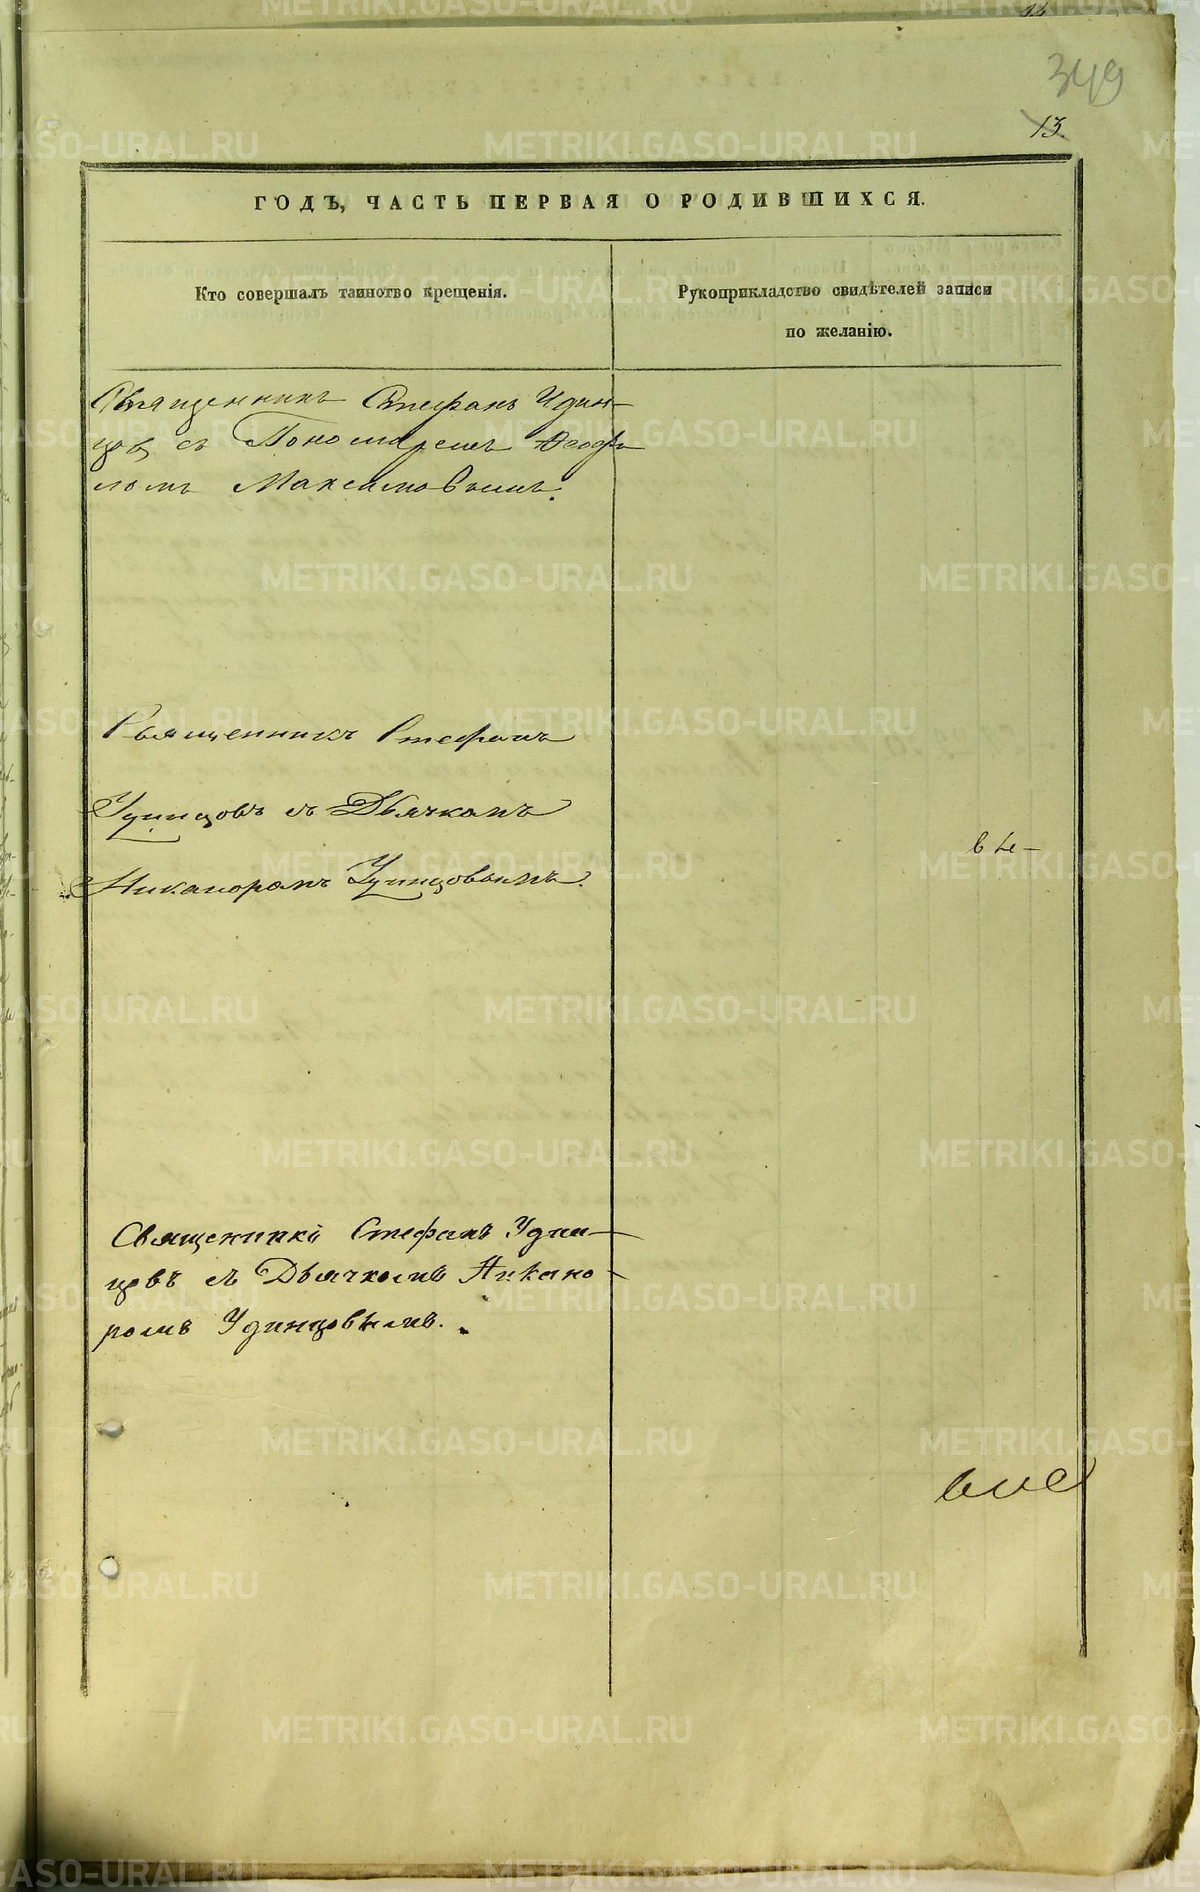 349
13.
ГОДЪ, ЧАСТЬ ПЕРВАЯ О РОДИВШИХСЯ.
Кто совершалъ таинство крещенія.
Рукоприкладство свидѣтелей записи
по желанію.
Священникъ Стефанъ Удин-
цовъ съ Пономаремъ Ѳеофи
ломъ Максимовымъ.
Священникъ Стефанъ
Удинцовъ съ Дьячкомъ
Никаноромъ Удинцовымъ.
Священникъ Стефанъ Удин-
цовъ съ Дьячкомъ Никано-
ромъ Удинцовымъ.
METRIKI.GASO-URAL.RU